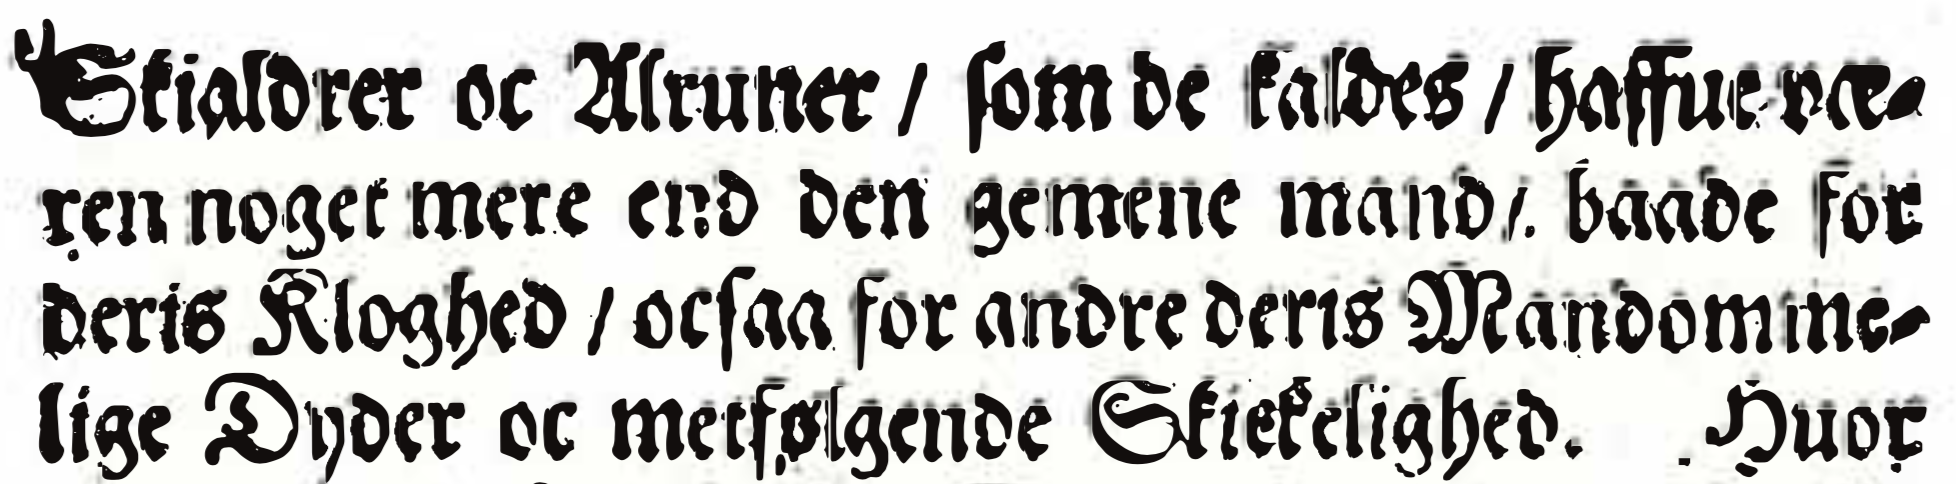 Skialdrer oc Alruner / som de kaldes / haffue væ-
ren noget mere end den gemene mand / baade for
deris Kloghed / ocsaa for andre deris Mandomme-
lige Dyder oc metfølgende Skickelighed. Huor